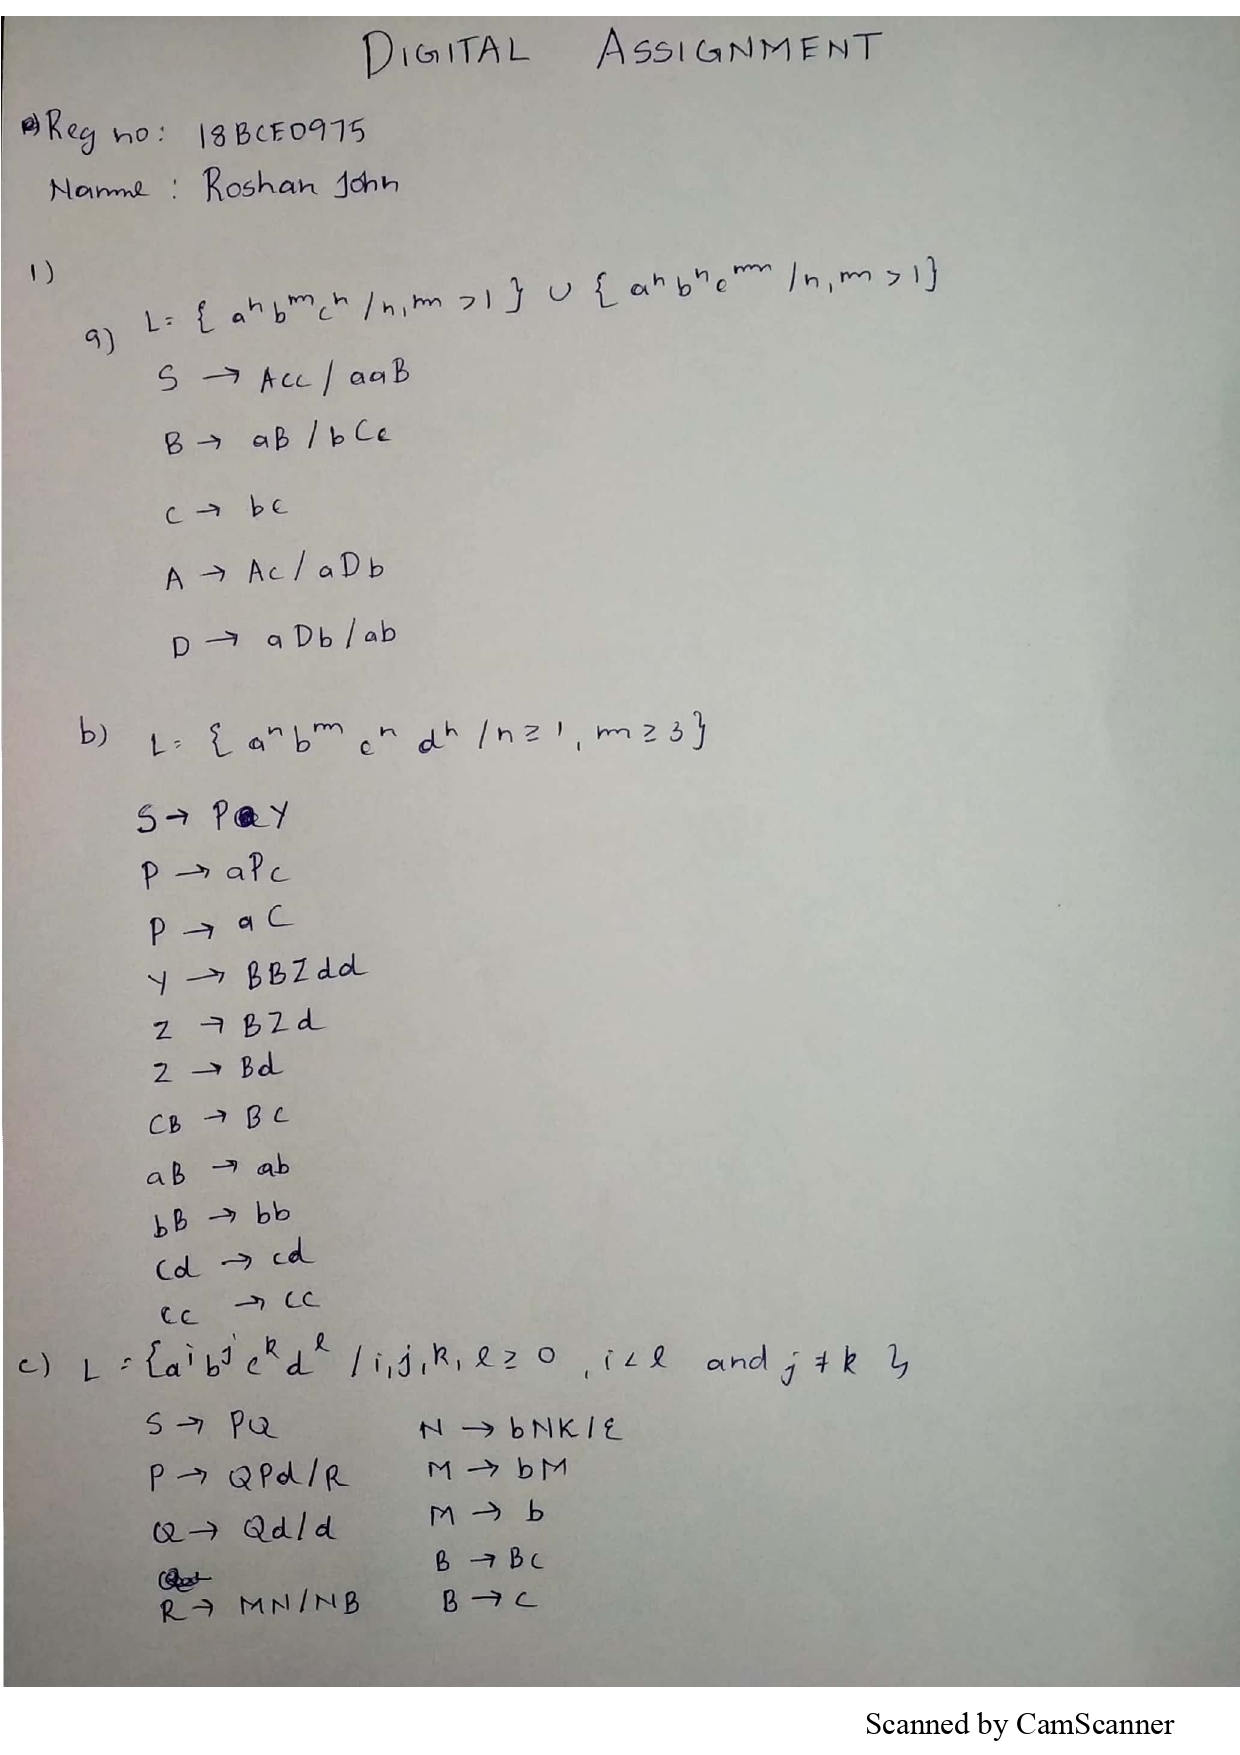 DIGITAL ASSIGNMENT
Reg no: 18BCE0975
Namme : Roshan John
1)
a) L = { aⁿ bᵐ cⁿ / n, m > 1 } ∪ { aⁿ bⁿ cᵐ / n, m > 1 }
S → Acc / aaB
B → aB / bCc
C → bc
A → Ac / aDb
D → aDb / ab
b) L = { aⁿ bᵐ cⁿ dⁿ / n ≥ 1, m ≥ 3 }
S → PY
P → aPc
P → aC
Y → BBZdd
Z → BZd
Z → Bd
CB → BC
aB → ab
bB → bb
Cd → cd
Cc → cc
c) L = { aⁱ bʲ cᵏ dˡ / i, j, k, l ≥ 0 , i < l and j ≠ k }
S → PQ N → bNK / ε
P → QPd / R M → bM
Q → Qd / d M → b
B → Bc
R → MN / NB B → c
Scanned by CamScanner